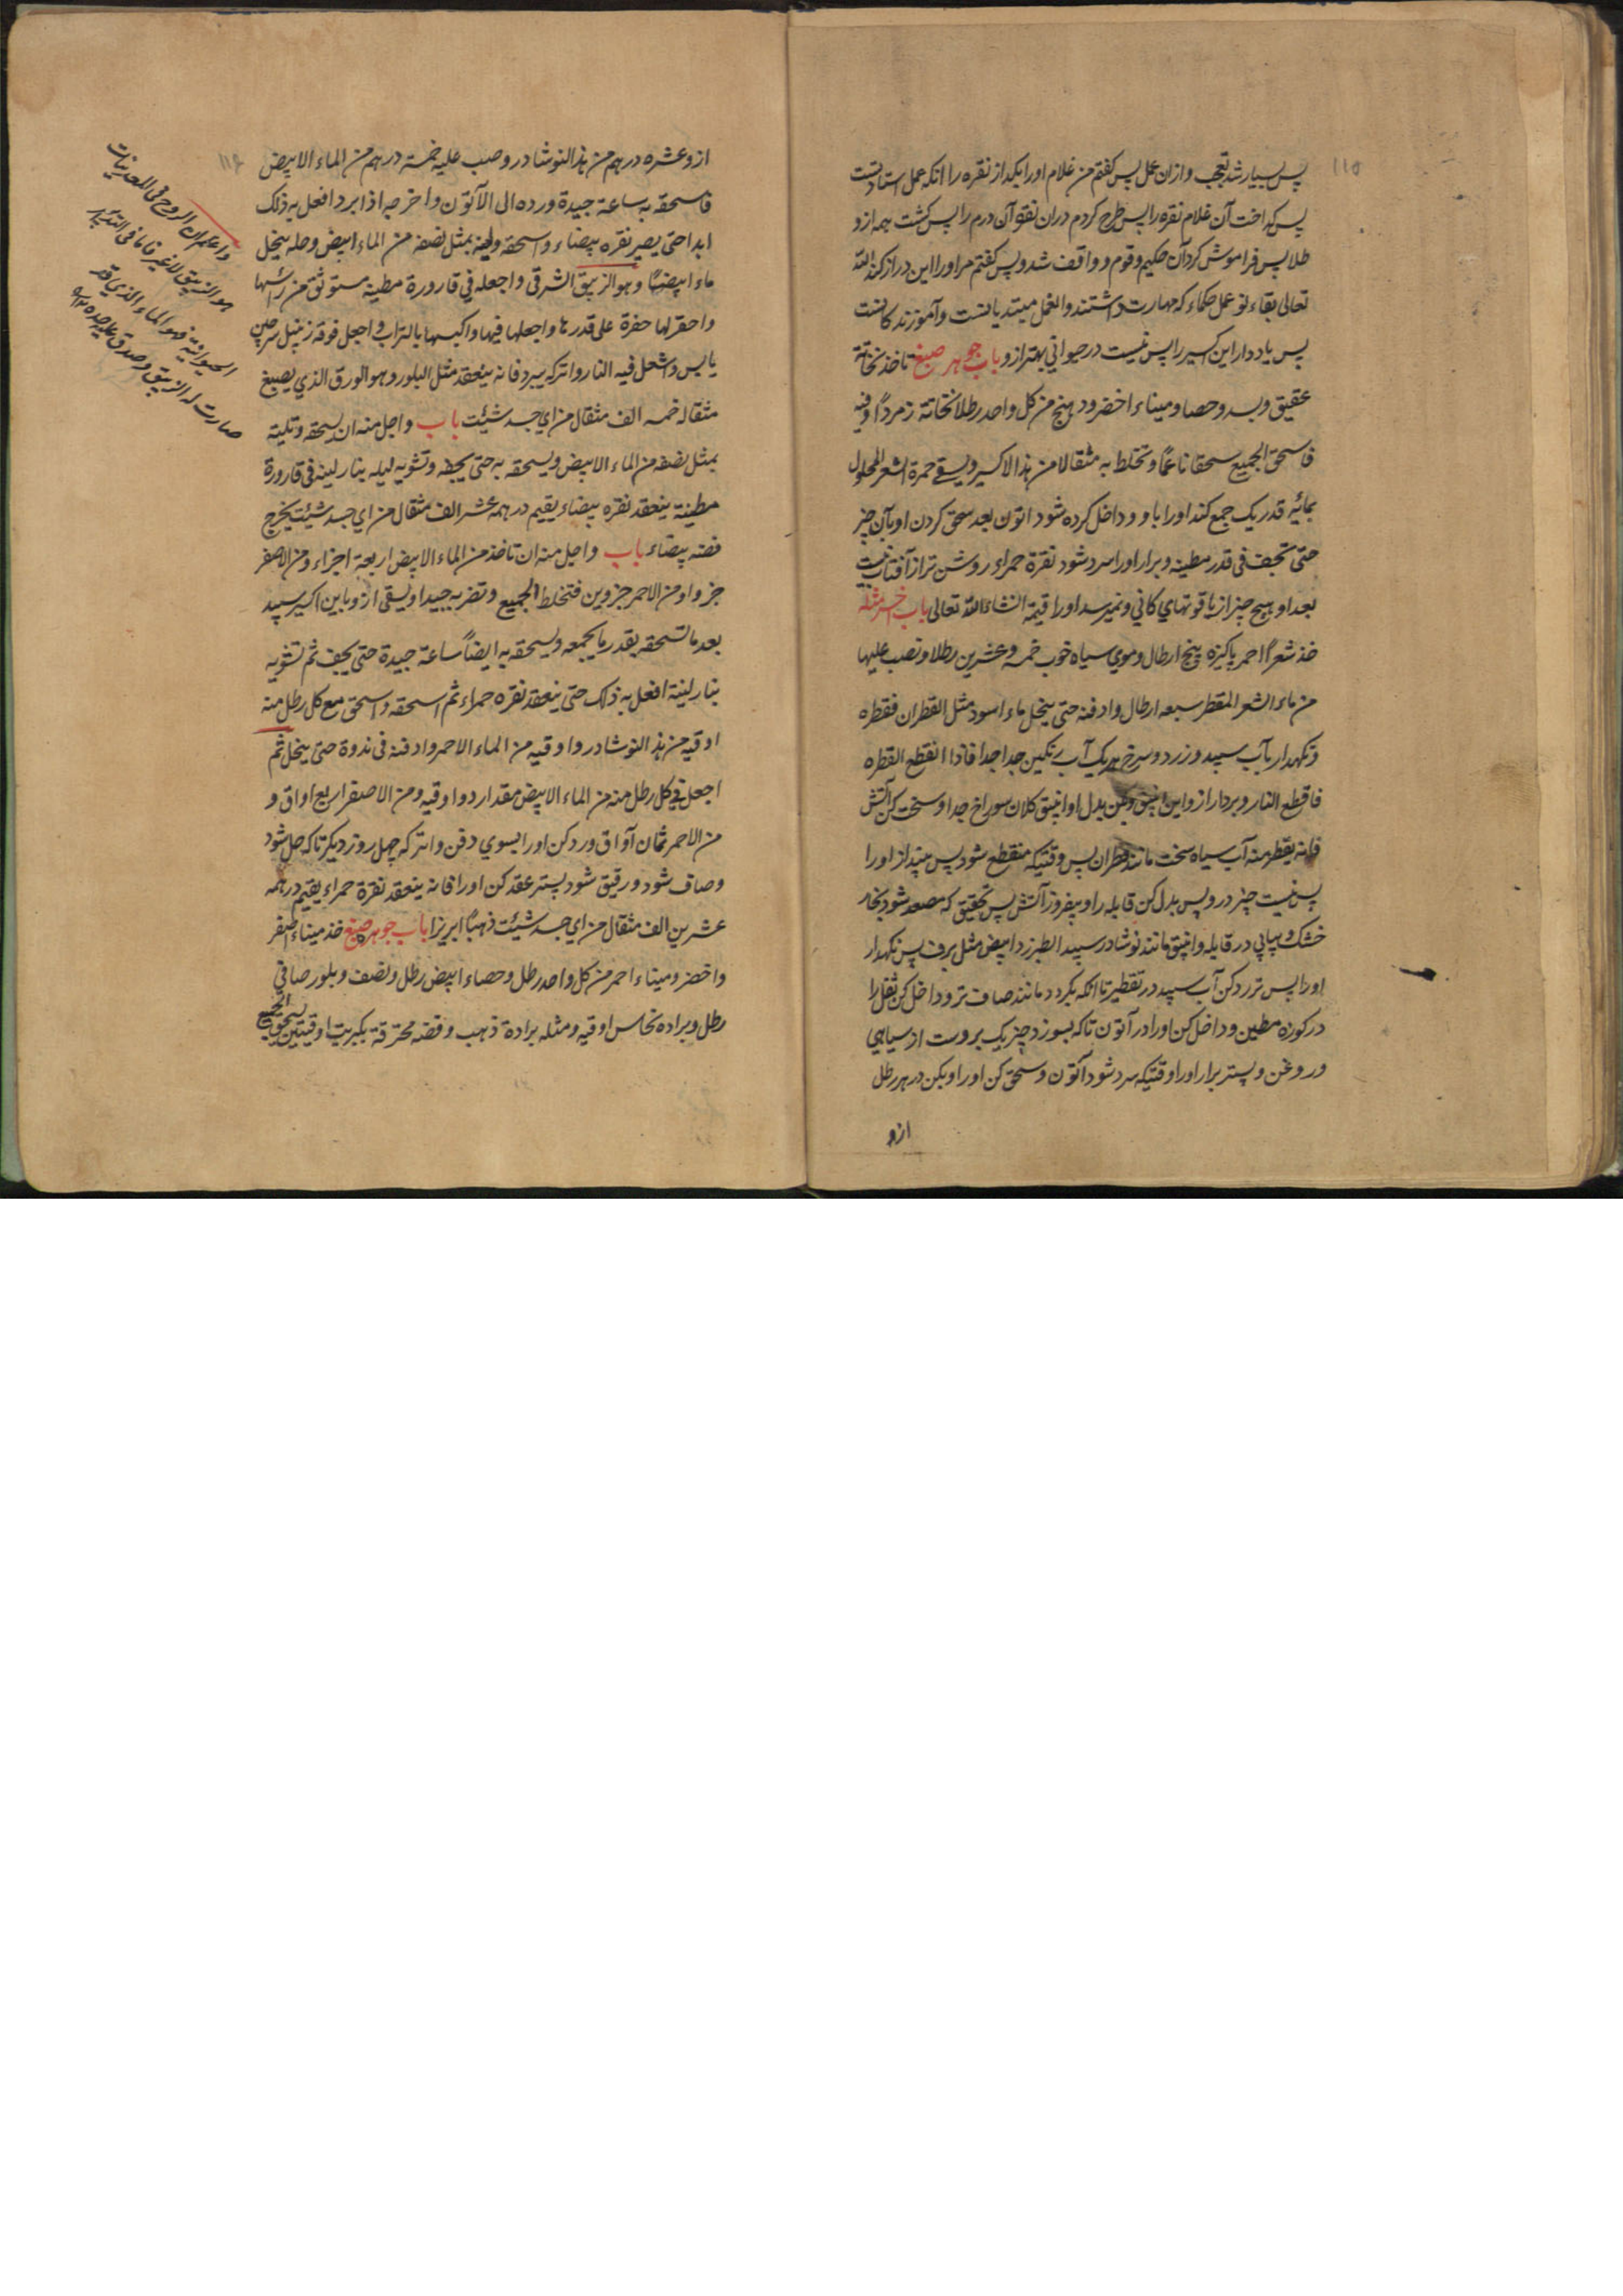 ۱۱۵
پس بسیار شد تعجب و ازان عمل پس کفتم من غلام اورا بکداز نقره را انکه عمل استادتست
پس کداخت آن غلام نقره را پس طرح کردم دران نقره آن درم را پس کشت همه ازو
طلا پس فراموش کرد آن حکیم وقوم و واقف شد و پس کفتم مر اورا این دراز کند الله
تعالی بقاء تو عمل حکماء که مهارت داشتند والعمل مبتدیانست و آموزندکانست
پس یاد دار این اکسیر را پس نیست در حیوانی بهتر ازو باب جوهر صبغ تاخذ نحاتة
عقیق وبسد وحصا ومیناء اخضر ودهنج من کل واحد رطلا نحاتة زمردا وقیه
فاسحق الجمیع سحقا ناعما وتخلط به مثقالا من هذا الاکسیر ویسقی حمرة الشعر المحلول
بمائیه قدریک جمع کند اورا با و و داخل کرده شود اتون بعد سحق کردن او بآن چیز
حتی تجف فی قدر مطینه وبرار اورا سرد شود نقرة حمراء روشن تر از آفتاب نیست
بعد او هیچ چیز از یاقوتهای کانی ونمیرسد اورا قیمة انشاءالله تعالی باب اخر مثله
خذ شعرا احمر پاکیزه پنج ارطال وموی سیاه خوب خمسه وعشرین رطلا وتصب علیها
من ماء الشعر المقطر سبعه ارطال وادفنه حتی ینحل ماء اسود مثل القطران فقطره
ونکهدار بآب سپید وزرد وسرخ هریک آب رنکین جدا جدا فاذا انقطع القطره
فاقطع النار وبردار ازو این انبیق وبکن بدل او انبیق کلان سوراخ جدا وسخت کن آتش
فانه یقطر منه آب سیاه سخت مانند قطران پس وقتیکه منقطع شود پس بینداز اورا
پس نیست چیز درو پس بدل کن قابله را وبیفروز آتش پس تحقیق که مصعد شود بخار
خشک وبیابی در قابله وانبیق مانند نوشادر سپید الطبرزد ابیض مثل برف پس نکهدار
اورا پس تررد کن آب سپید در تقطیر تا انکه بکردد مانند صاف تر و داخل کن ثفل را
در کوزه مطین و داخل کن اورا در آتون تا که بسوزد چیزیک بروست از سیاهی
وروغن وپستر برار اورا وقتیکه سرد شود آتون وسحق کن اورا وبکن در هر رطل
ازو
۱۱۶
ازو عشره درهم من هذا النوشادر وصب علیه خمسة درهم من الماء الابیض
فاسحقه به ساعة جیدة ورده الی الآتون واخرجه اذا ابرد افعل به ذلک
ابدا حتی یصیر نقره بیضاء واسحقه ولته بمثل نصفه من الماء ابیض وحله ینحل
ماء ابیضا وهو الزیبق الشرقی واجعله فی قارورة مطینه مستوثق من راسها
واحفر لها حفرة علی قدرها واجعلها فیها واکبسها بالتراب واجعل فوقه زنبیل سرجین
یابس واشعل فیه النار واترکه یبرد فانه ینعقد مثل البلور وهو الورق الذی یصبغ
مثقاله خمسه الف مثقال من ای جسد شئت باب واجل منه ان یسحقه وتلته
بمثل نصفه من الماء الابیض ویسحقه به حتی یجف وتشویه لیله بنار لینه فی قارورة
مطینة ینعقد نقره بیضاء یقیم درهمه عشر الف مثقال من ای جسد شئت یخرج
فضه بیضاء باب واجل منه ان تاخذ من الماء الابیض اربعة اجزاء ومن الاصفر
جزوا ومن الاحمر جزوین فتخلط الجمیع وتضربه جیدا ویسقی ازو باین اکسیر سپید
بعد ما تسحقه بقدر ما یجمعه ویسحقه به ایضا ساعة جیدة حتی یجف ثم تشویه
بنار لینة افعل به ذلک حتی ینعقد نقره حمراء ثم اسحقه واسحق مع کل رطل منه
اوقیه من هذ النوشادر واوقیه من الماء الاحمر وادفنه فی ندوة حتی ینحل ثم
اجعل فی کل رطل منه من الماء الابیض مقدار دو اوقیه ومن الاصفر اربع اواق و
من الاحمر ثمان آواق ورد کن اورا بسوی دفن واترکه چهل روز دیکر تا که حل شود
وصاف شود ورقیق شود پستر عقد کن اورا فانه ینعقد نقرة حمراء یقیم درهمه
عشرین الف مثقال من ای جسد شئت ذهبا ابریزا باب جوهر صبغ خذ میناء اصفر
واخضر ومیناء احمر من کل واحد رطل وحصاء ابیض رطل ونصف وبلور صافی
رطل وبراده نحاس اوقیه ومثله برادة ذهب وفضه محرقة بکبریت اوقیتین یسحق الجمیع
واعلم ان الروح فی المعدنیات
هو الزیبق لا غیر فاما فی التدبیر
الحیوانیه فهو الماء الذی قد
صارت له الزیبق وصدق علی